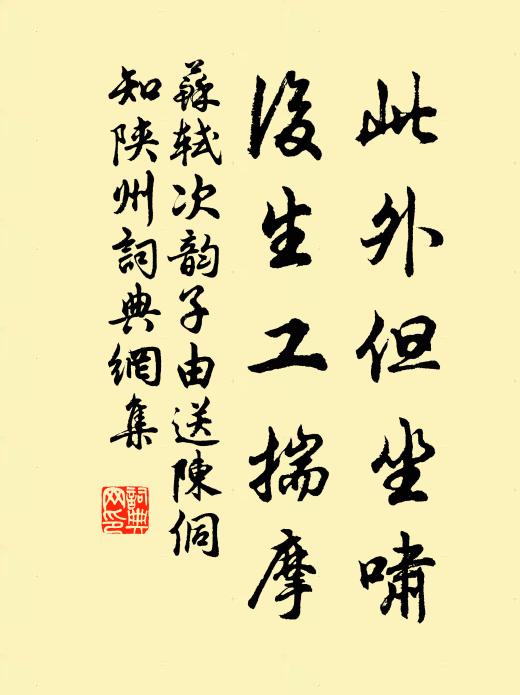 此外但坐啸
後生工揣摩
蘇軾次韵子由送陳侗
知陝州詞典網集
詞典网印